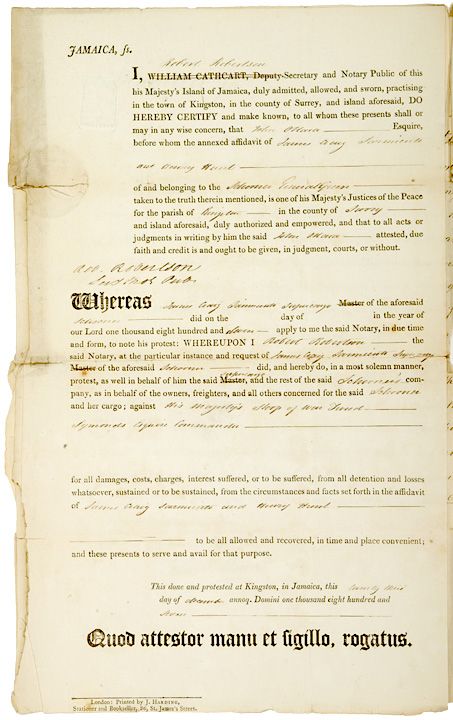 JAMAICA, ſs.
Robert Robertson
I, WILLIAM CATHCART, Deputy-Secretary and Notary Public of this
his Majesty's Island of Jamaica, duly admitted, allowed, and sworn, practising
in the town of Kingston, in the county of Surrey, and island aforesaid, DO
HEREBY CERTIFY and make known, to all whom these presents shall or
may in any wise concern, that John Esquire,
before whom the annexed affidavit of James Craig Sarmiento
and Henry Hunt
of and belonging to the Schooner
taken to the truth therein mentioned, is one of his Majesty's Justices of the Peace
for the parish of Kingston in the county of Surry
and island aforesaid, duly authorized and empowered, and that to all acts or
judgments in writing by him the said John attested, due
faith and credit is and ought to be given, in judgment, courts, or without.
Rob Robertson
Not. Pub.
Whereas James Craig Sarmiento Supercargo Master of the aforesaid
Schooner did on the day of in the year of
our Lord one thousand eight hundred and Seven apply to me the said Notary, in due time
and form, to note his protest: WHEREUPON I Robert Robertson the
said Notary, at the particular instance and request of James Craig Sarmiento Supercargo
Master of the aforesaid Schooner did, and hereby do, in a most solemn manner,
Supercargo
protest, as well in behalf of him the said Master, and the rest of the said Schooners com-
pany, as in behalf of the owners, freighters, and all others concerned for the said Schooner
and her cargo; against His Majesty's Sloop of War
Symonds Esquire Commander
for all damages, costs, charges, interest suffered, or to be suffered, from all detention and losses
whatsoever, sustained or to be sustained, from the circumstances and facts set forth in the affidavit
of James Craig Sarmiento and Henry Hunt
to be all allowed and recovered, in time and place convenient;
and these presents to serve and avail for that purpose.
This done and protested at Kingston, in Jamaica, this
day of March annoq. Domini one thousand eight hundred and
Seven
Quod attestor manu et sigillo, rogatus.
London: Printed by J. HARDING,
Stationer and Bookseller, 36, St. James's Street.